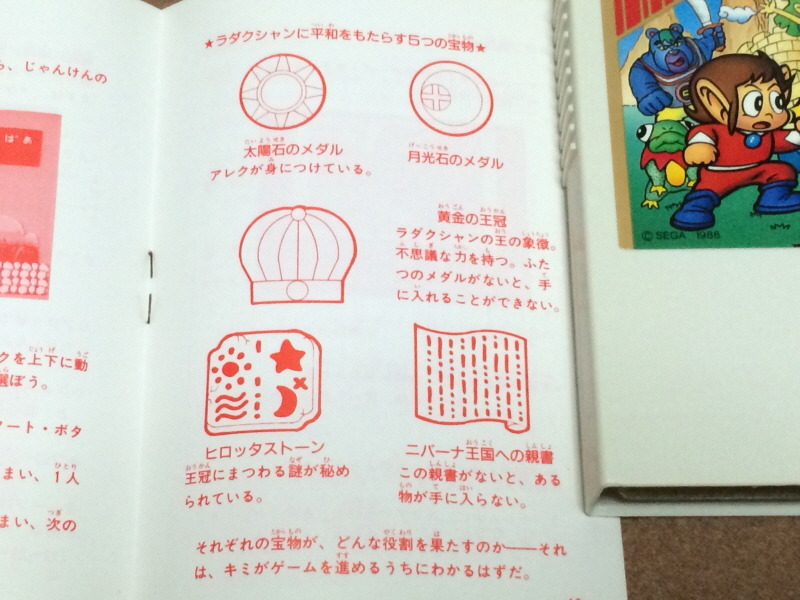 ら、じゃんけんの
ばあ
クを上下に動
選ぼう。
タート・ボタ
まい、1人
まい、次の
★ラダクシャンに平和をもたらす5つの宝物★
太陽石のメダル
アレクが身につけている。
月光石のメダル
黄金の王冠
ラダクシャンの王の象徴。
不思議な力を持つ。ふた
つのメダルがないと、手
に入れることができない。
ヒロッタストーン
王冠にまつわる謎が秘め
られている。
ニバーナ王国への親書
この親書がないと、ある
物が手に入らない。
それぞれの宝物が、どんな役割を果たすのか——それ
は、キミがゲームを進めるうちにわかるはずだ。
© SEGA 1986